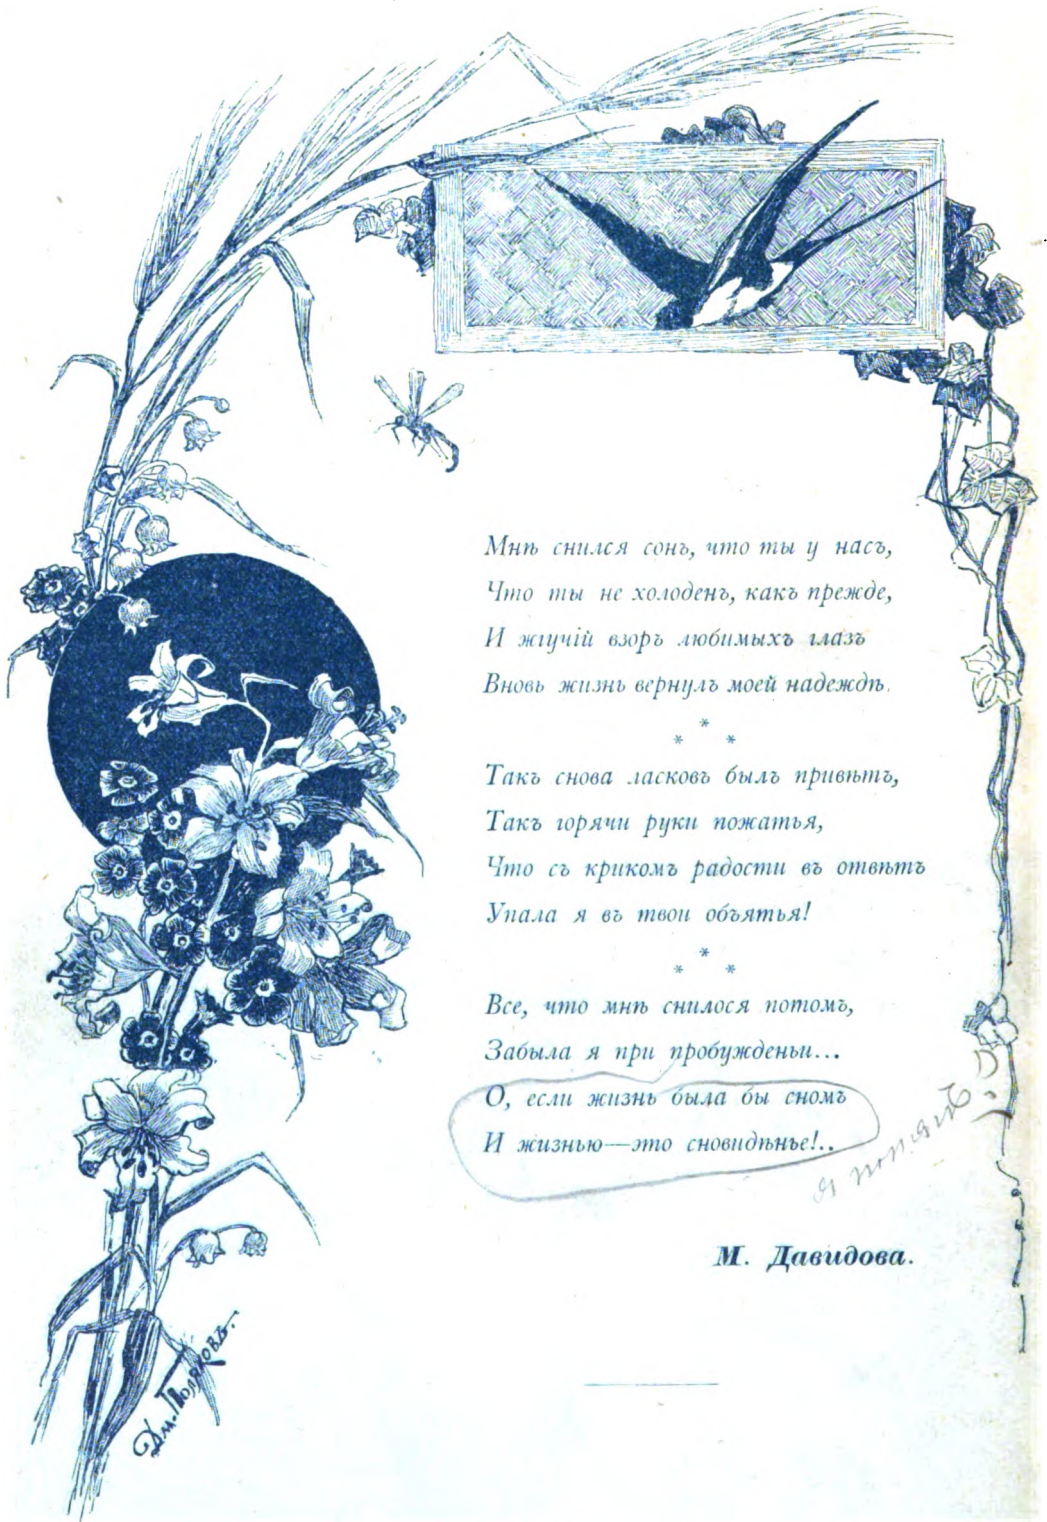 Мнѣ снился сонъ, что ты у насъ,
Что ты не холоденъ, какъ прежде,
И жгучій взоръ любимыхъ глазъ
Вновь жизнь вернулъ моей надеждѣ.
*
* *
Такъ снова ласковъ былъ привѣтъ,
Такъ горячи руки пожатья,
Что съ крикомъ радости въ отвѣтъ
Упала я въ твои объятья!
*
* *
Все, что мнѣ снилося потомъ,
Забыла я при пробужденьи...
О, если жизнь была бы сномъ
И жизнью—это сновидѣнье!..
М. Давидова.
Дм. Поляковъ.